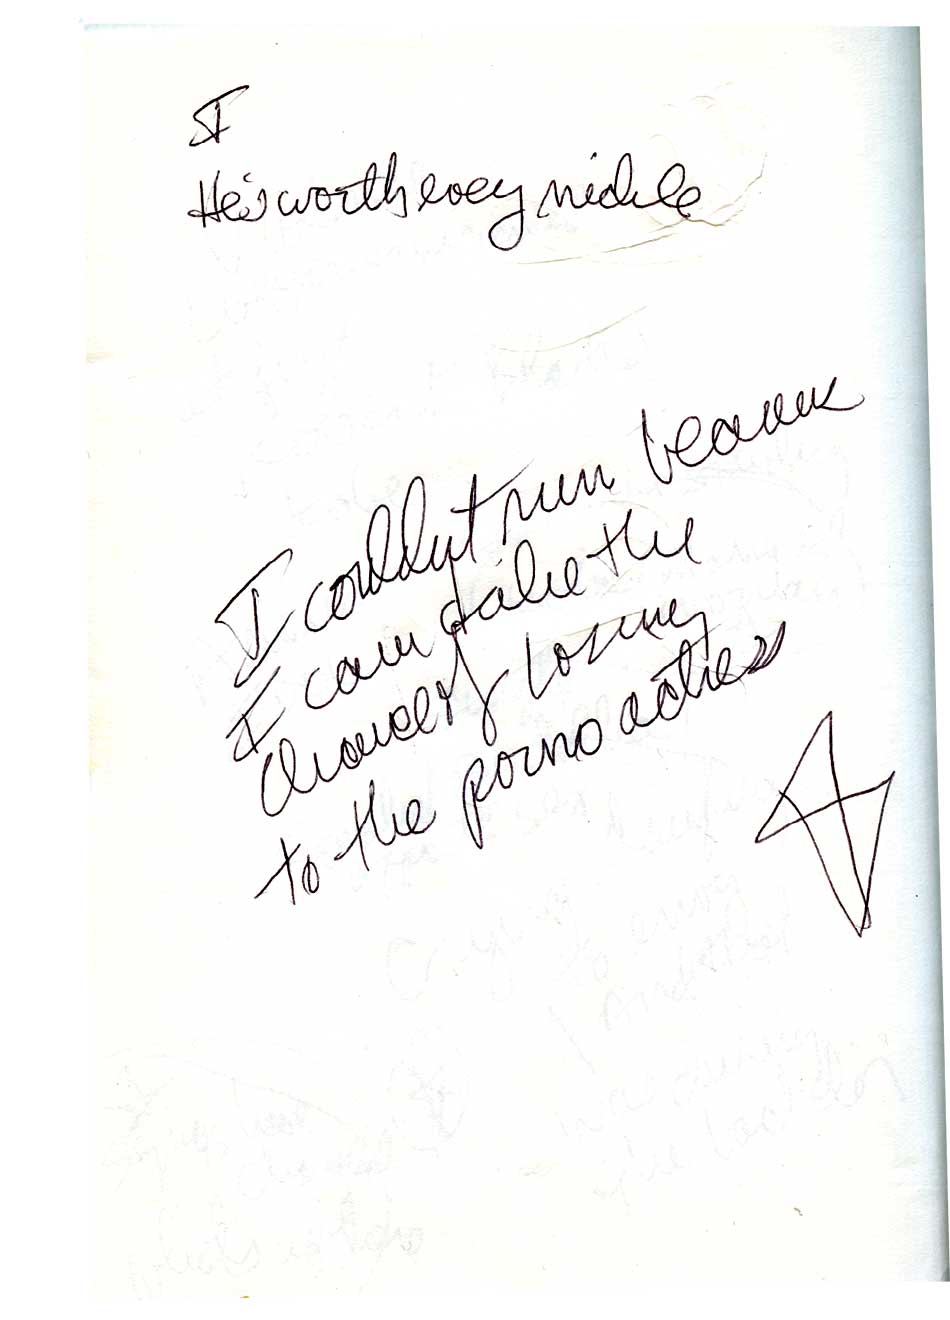 I
He's worth every nickle
I couldn't run because
I can't take the
chance of losing
to the porno actress